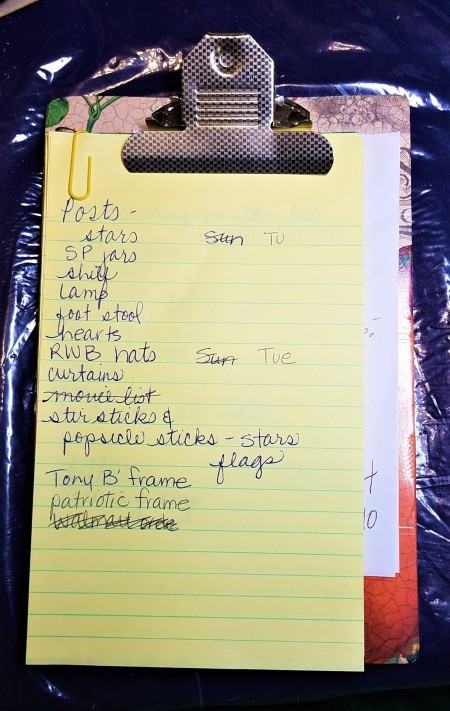 Posts -
stars Sun TU
SP jars
shelf
Lamp
foot stool
hearts
RWB hats Sun Tue
curtains
movie list
stir sticks &
popsicle sticks - stars
flags
Tony B' frame
patriotic frame
Walmart order
10